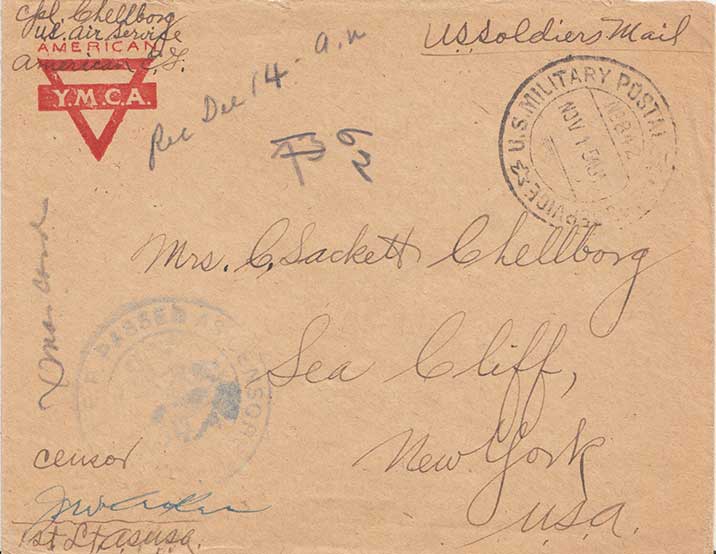 Cpl. Chellborg
U.S. Air Service
AMERICAN
American E.F.
Y.M.C.A.
U.S. Soldiers Mail
Rec Dec 14 - a.m
U.S. MILITARY POSTAL SERVICE
NOV 15
Mrs. C. Sackett Chellborg
Sea Cliff,
New York
U.S.A.
Xmas card
PASSED AS CENSORED
censor
1st Lt. A.S.U.S.A.